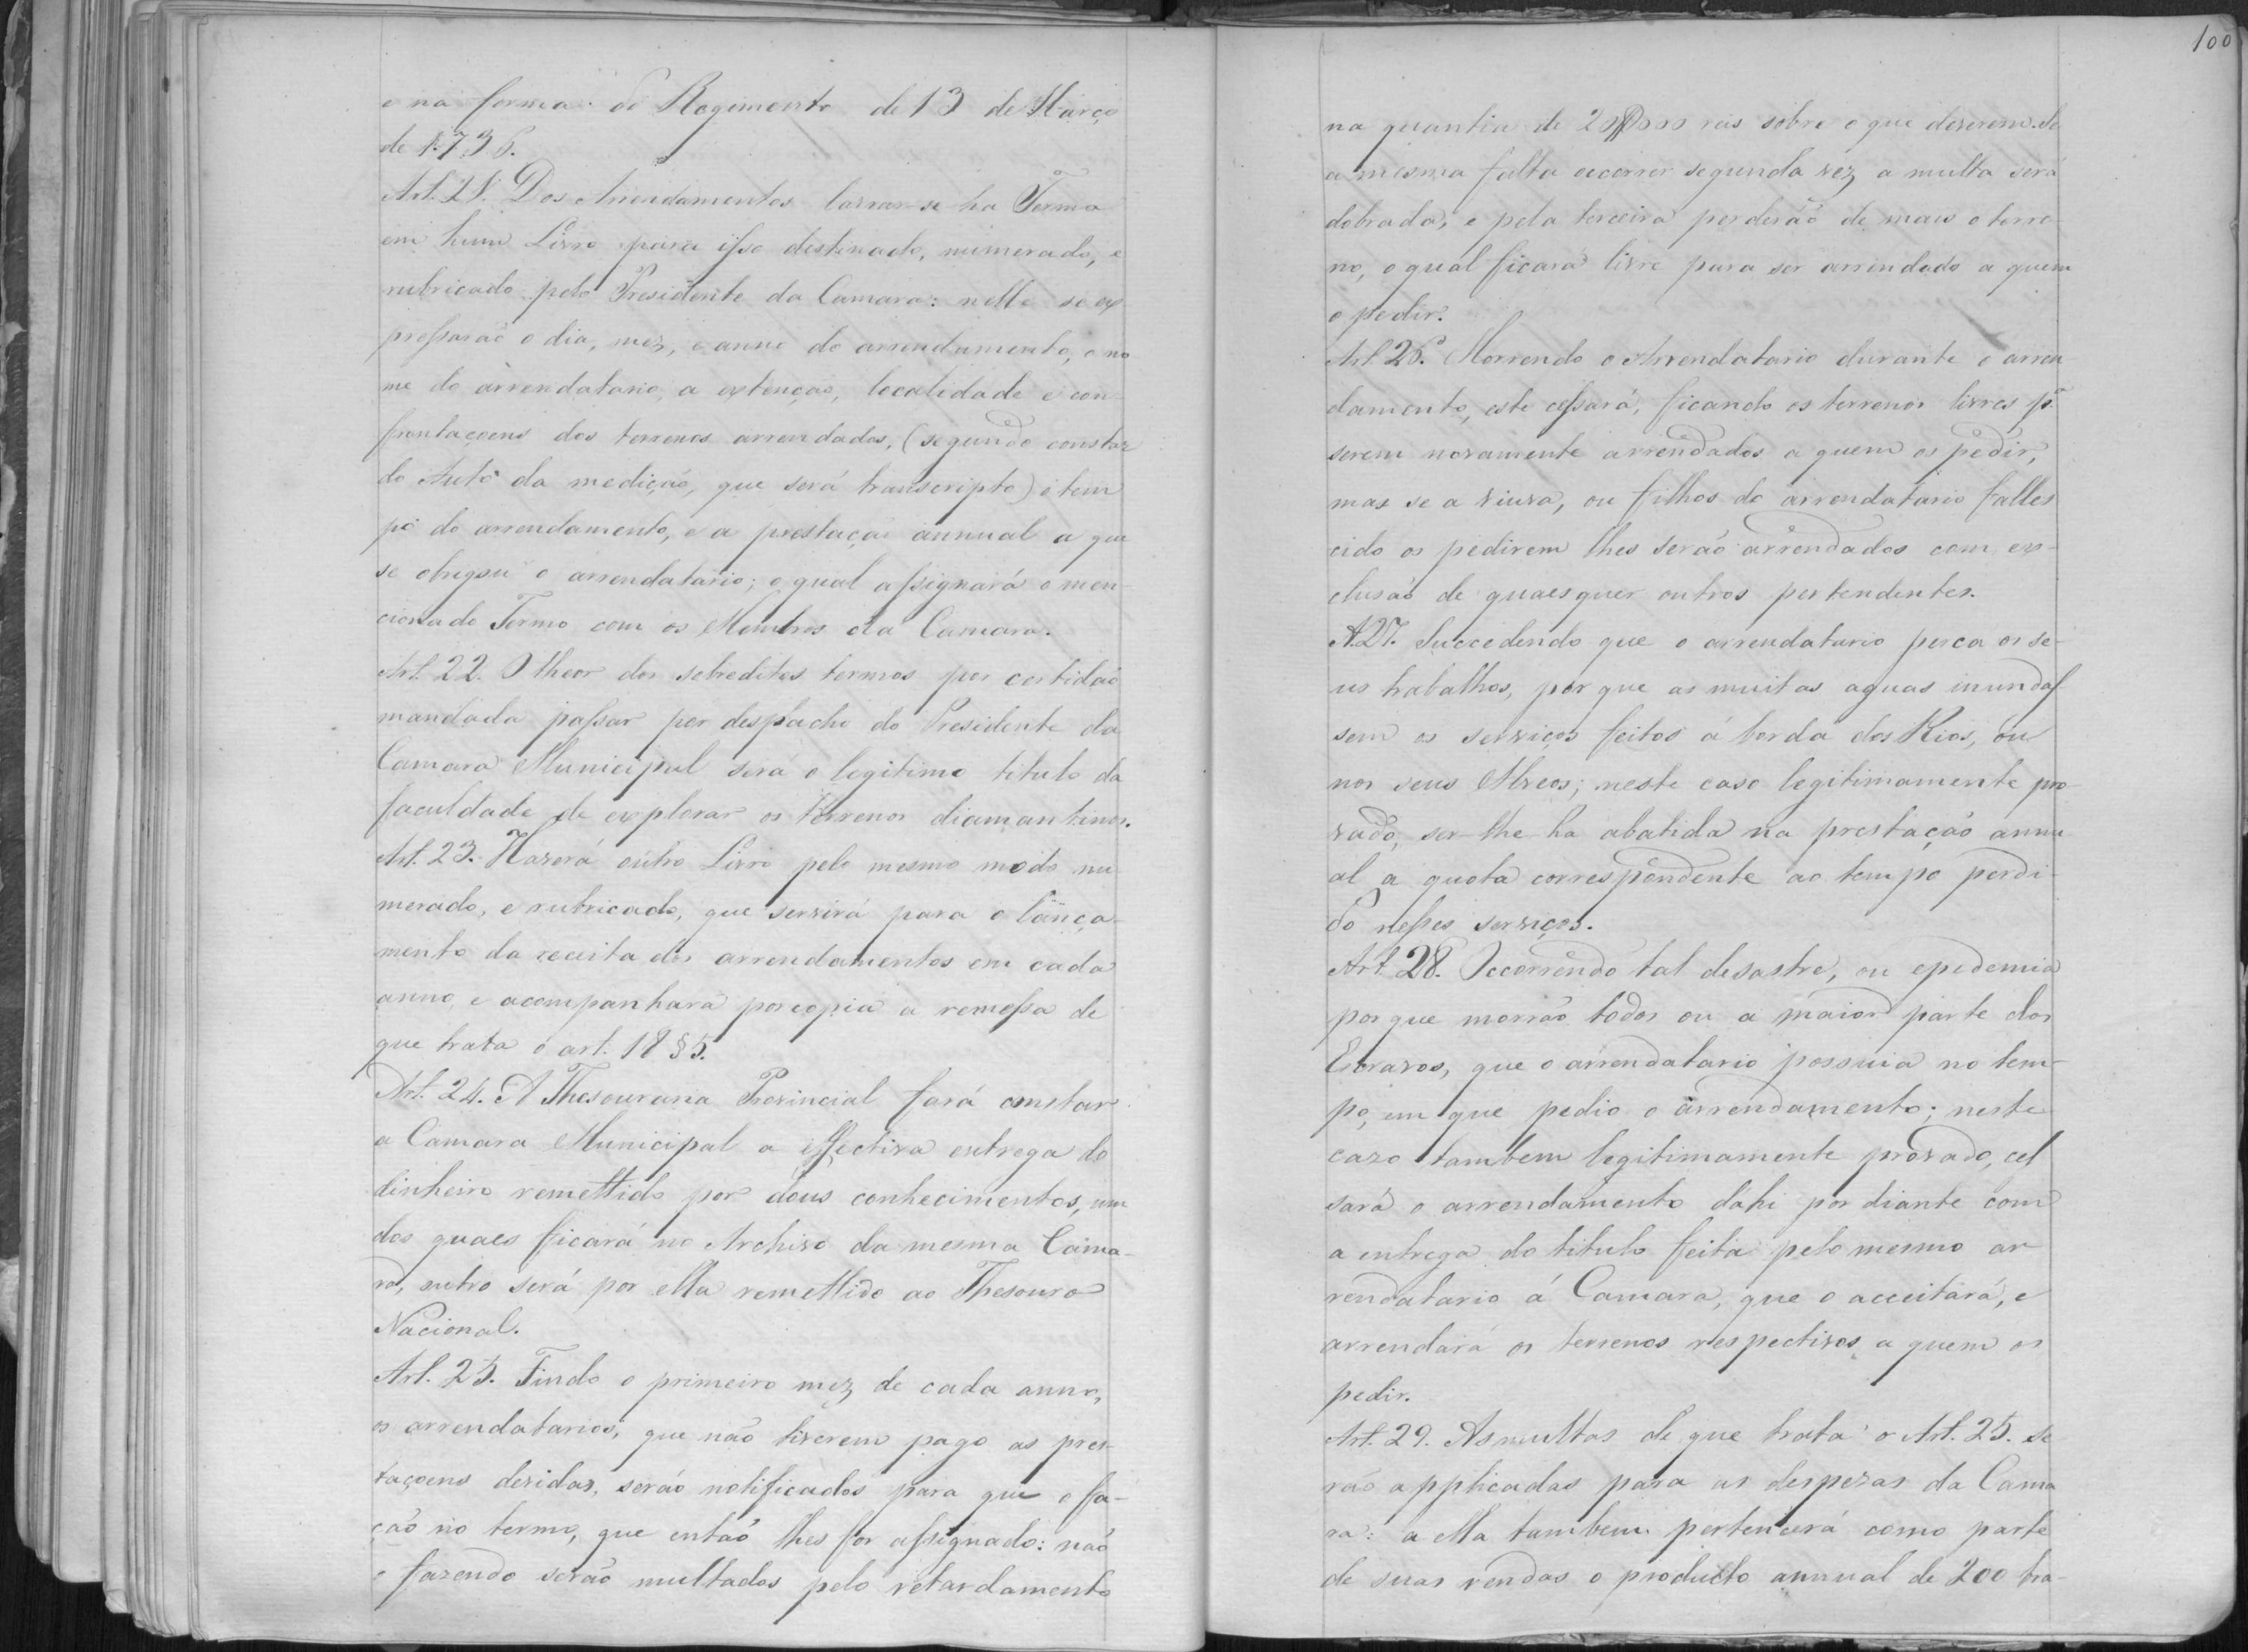 e na forma do Regimento de 13 de Março
de 1736.
Art. 21. Dos Arrendamentos lavrar-se ha Termo
em hum Livro para isso destinado, numerado, e
rubricado pelo Presidente da Camara: nelle se ex
pressarão o dia, mez, e anno do arrendamento, o no
me do arrendatario, a extenção, localidade e con-
frontaçoens dos terrenos arrendados, (segundo constar
do Auto da medição, que será transcripto) o tem
po do arrendamento, e a prestação annual a que
se obrigou o arrendatario; o qual assignará o men-
cionado Termo com os Membros da Camara.
Art. 22. O theor dos sobreditos termos por certidão
mandada passar per despacho do Presidente da
Camara Municipal será o legitimo titulo da
faculdade de explorar os terrenos diamantinos.
Art. 23. Haverá outro Livro pelo mesmo modo nu
merado, e rubricado, que servirá para o lança-
mento da receita dos arrendamentos em cada
anno, e acompanhará por copia a remessa de
que trata o art. 18 § 5.
Art. 24. A Thesouraria Provincial fará constar
a Camara Municipal a effectiva entrega do
dinheiro remettido por dous conhecimentos, um
dos quaes ficará no Archivo da mesma Cama-
ra, outro será por ella remettido ao Thesouro
Nacional.
Art. 25. Findo o primeiro mez de cada anno,
os arrendatarios, que não tiverem pago as pres-
taçoens devidas, serão notificados para que o fa-
ção no termo, que então lhes for assignado: não
o fazendo serão multados pelo retardamento
100
na quantia de 20$000 reis sobre o que deverem. Se
a mesma falta occorrer segunda vez a multa será
dobrada, e pela terceira perderão de mais o terre-
no, o qual ficará livre para ser arrendado a quem
o pedir.
Art. 26. Morrendo o Arrendatario durante o arren
damento, este cessará, ficando os terrenos livres pª
serem novamente arrendados a quem os pedir,
mas se a viuva, ou filhos do arrendatario falles
cido os pedirem lhes serão arrendados com ex-
clusão de quaesquer outros pertendentes.
A. 27. Succedendo que o arrendatario perca os se-
us trabalhos, por que as muitas aguas inundas
sem os serviços feitos á borda dos Rios, ou
nos seus Alveos; neste caso legitimamente pro-
vado, ser-lhe-ha abatida na prestação annu
al a quota correspondente ao tempo perdi-
do nesses serviços.
Art. 28. Occorrendo tal desastre, ou epedemia
porque morrão todos ou a maior parte dos
Escravos, que o arrendatario possuia no tem-
po, em que pedio o arrendamento; neste
cazo tambem legitimamente provado, ces
sará o arrendamento dahi por diante com
a entrega do titulo feita pelo mesmo ar
rendatario á Camara, que o acceitará, e
arrendará os terrenos respectivos a quem os
pedir.
Art. 29. As multas de que trata o Art. 25. se
rão applicadas para as despezas da Cama
ra: a ella tambem pertencerá como parte
de suas rendas o producto annual de 200 bra-